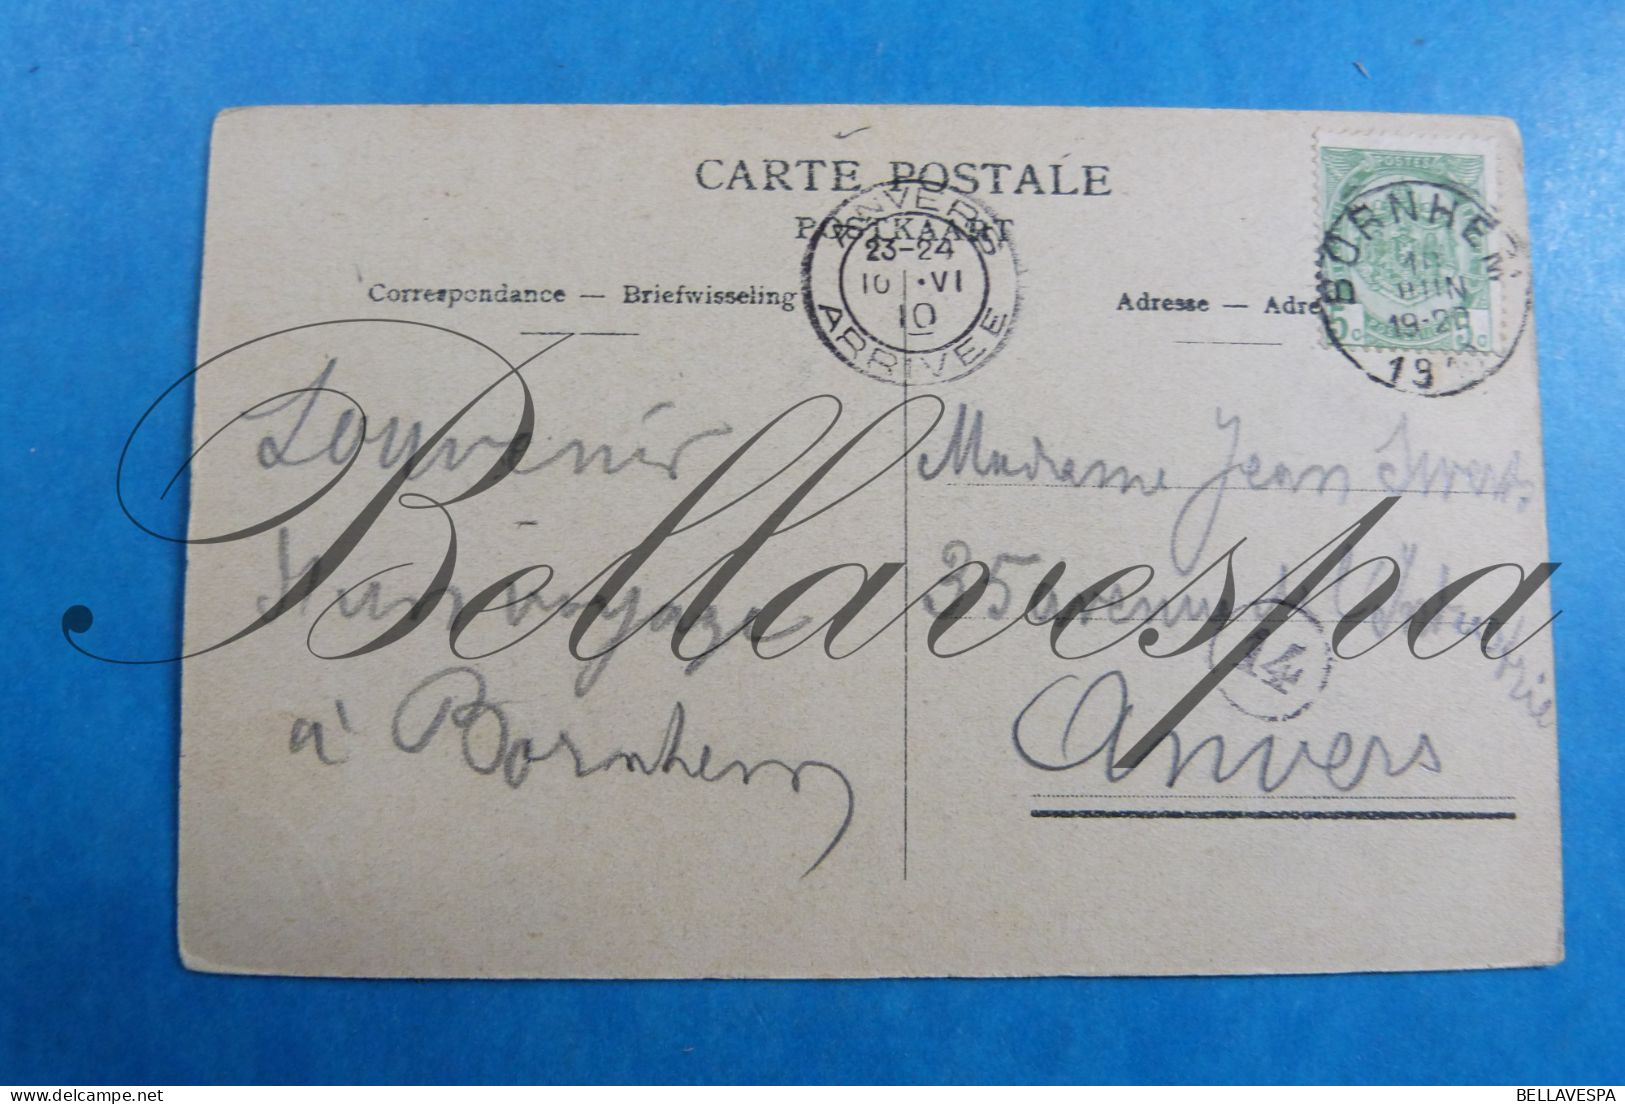 CARTE POSTALE
POSTKAART
Correspondance — Briefwisseling
Adresse — Adre
ANVERS
23-24
10 VI
10
ARRIVEE
POSTES
BORNHEM
10
JUIN
19-20
19
5 c 5 c
Souvenir
à Bornhem
Madame Jean
35 avenue de l'Industrie
Anvers
14
Bellavespa
BELLAVESPA